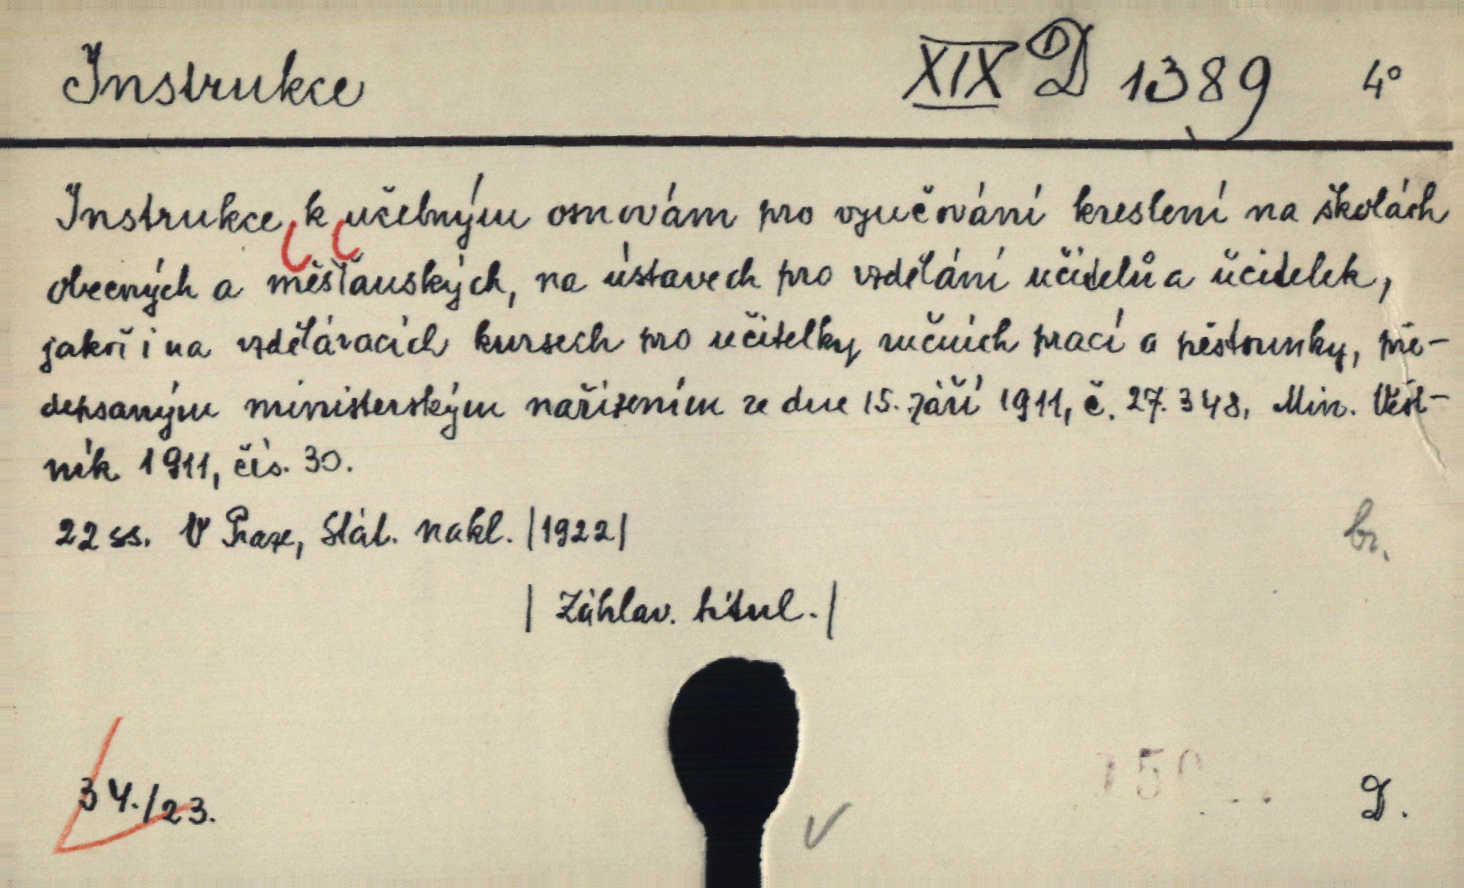 Instrukce XIX D 1389 4°
Instrukce k učebným osnovám pro vyučování kreslení na školách
obecných a měšťanských, na ústavech pro vzdělání učitelů a učitelek,
jakož i na vzdělávacích kursech pro učitelky ručních prací a pěstounky, pře-
depsaným ministerským nařízením ze dne 15. září 1911, č. 27.348, Min. Věst-
ník 1911, čís. 30.
22 ss. V Praze, Stát. nakl. |1922|
br.
| Záhlav. titul. |
34./23.
D.